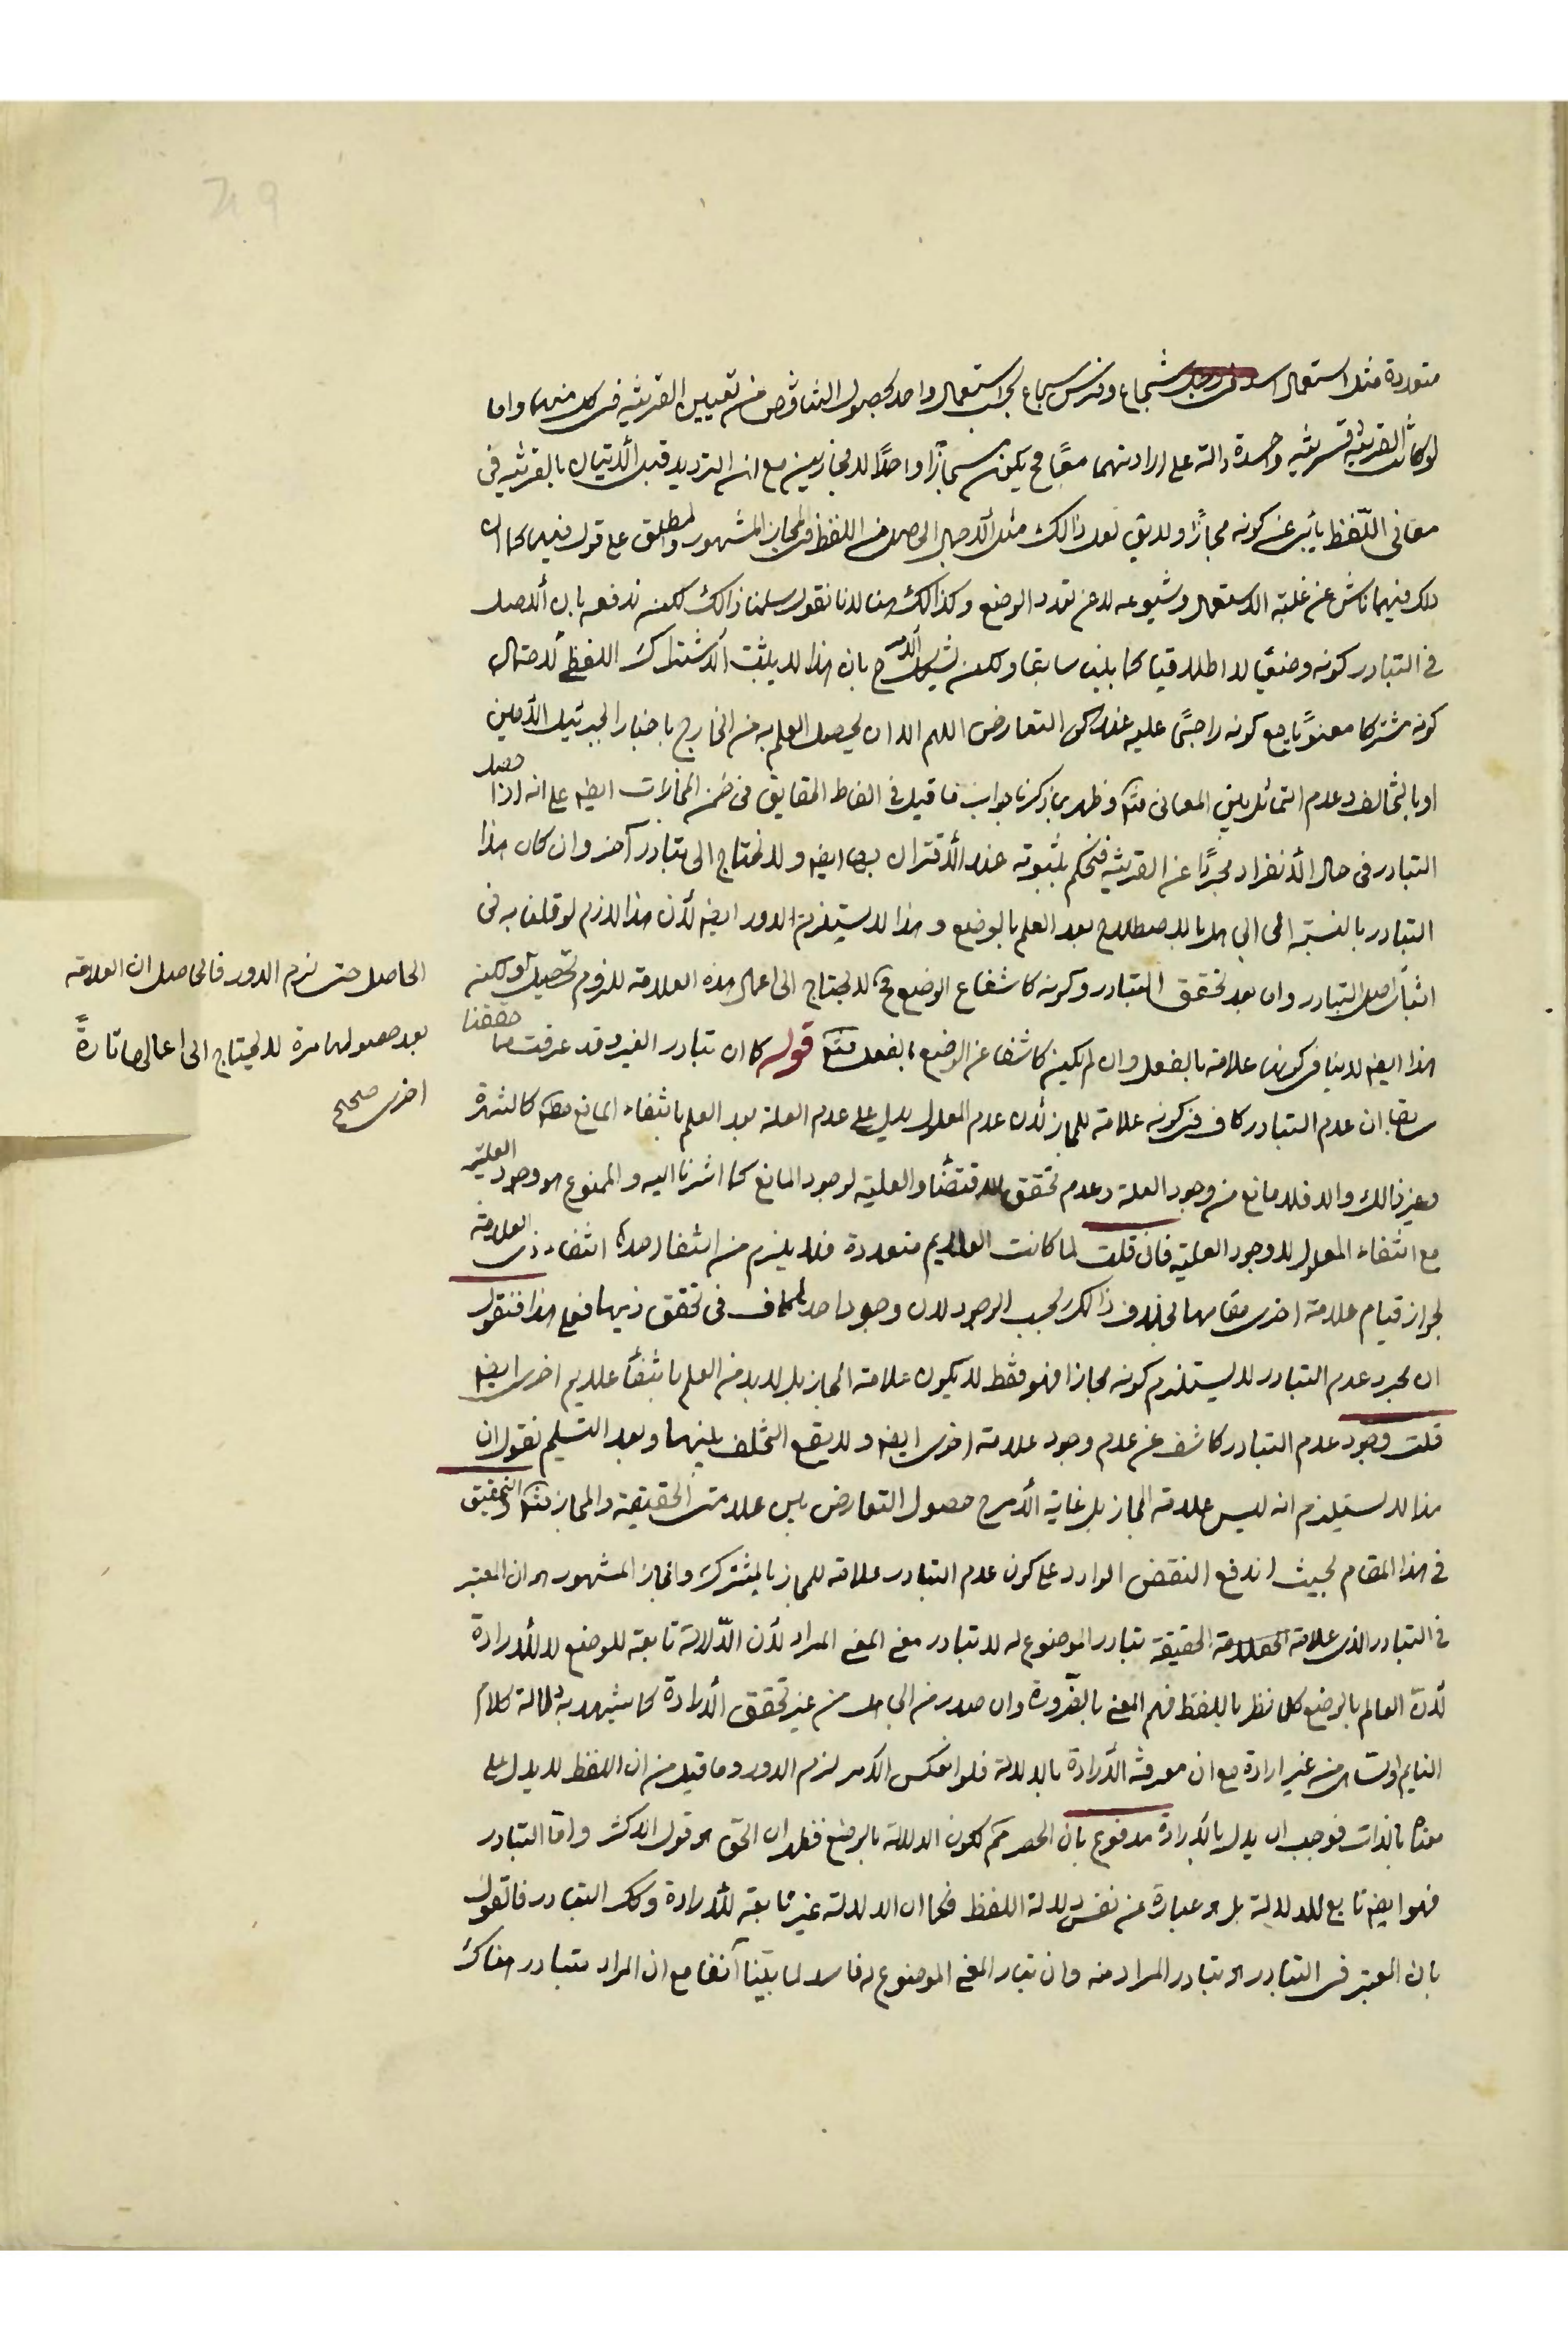 متعددة مثل استعمال اسد فى رجل شجاع وفرس شجاع بحسب استعمال واحد لحصول التناقض من تعيين القرينة فى كل منهما واما
لو كانت القرينة قرينة واحدة دالة على ارادتهما معًا فح يكون مجازًا واحدًا لا مجازين مع ان الترديد قبل الاتيان بالقرينة فى
معانى اللّفظ يأبى عن كونه مجازًا ولا يق لعل ذالك مثل الاجمال الحاصل من اللفظ فى المجاز المشهور والمطلق على قول فيهما كما ان
ذلك فيهما ناش عن غلبة الاستعمال وشيوعه لا عن تعدد الوضع وكذالك هنا لانا نقول سلمنا ذالك لكن ندفعه بان الاصل
فى التبادر كونه وضعيا لا اطلاقيا كما بينا سابقا ولكن يشكل الامر ح بان هذا لا يثبت الاشتراك اللفظى لاحتمال
كونه مشتركا معنويًا مع كونه راجحًا عليه عند التعارض اللهم الا ان يحصل العلم به من الخارج باخبار الجبرئيل الأمين
او بالتخالف وعدم التماثل بين المعانى فتم وظهر بما ذكرنا جواب ما قيل فى الفاظ الحقايق فى ضمن المجازات ايضا على انه اذا حصل
التبادر فى حال الأنفراد مجردًا عن القرينة فنحكم بثبوته عند الأقتران بها ايضا ولا نحتاج الى تبادر آخر وان كان هذا
التبادر بالنسبة الى الجاهل بالاصطلاح بعد العلم بالوضع وهذا لا يستلزم الدور ايضا لأن هذا لازم لو قلنا به فى
اثبات اصل التبادر وان بعد تحقق التبادر وكونه كاشفا ع الوضع فح لا يحتاج الى اعمال هذه العلامة للزوم تحصيل ولكن
الحاصل حتى لزم الدور فالحاصل ان العلامة
بعد حصولها مرة لا يحتاج الى اعمالها تارةً
اخرى صحيح
هذا ايضا لا ينافى كونها علامة بالفعل وان لم يكن كاشفا عن الوضع بالفعل فتم قوله كان تبادر الغير وقد عرفت مما حققنا
سابقا ان عدم التبادر كاف فى كونه علامة للمجاز لأن عدم المعلول يدل على عدم العلة بعد العلم بانتفاء المانع مطه كالشهرة
وغير ذالك والا فلا مانع من وجود العلة وعدم تحقق الاقتضاء والعلية لوجود المانع كما اشرنا اليه والممنوع هو وجود العلية
مع انتفاء المعلول لا وجود العلية فان قلت لما كانت العلايم متعددة فلا يلزم من انتفاء احدها انتفاء ذى العلامة
لجواز قيام علامة اخرى مقامها بخلاف ذالك بحسب الوجود لان وجود احدها كاف فى تحقق ذيها فعلى هذا فنقول
ان مجرد عدم التبادر لا يستلزم كونه مجازا فهو فقط لا يكون علامة المجاز بل لا بد من العلم بانتفاء علايم اخرى ايضا
قلت وجود عدم التبادر كاشف عن عدم وجود علامة اخرى ايضا ولا يقع التخلف بينهما وبعد التسليم نقول ان
هذا لا يستلزم انه ليس علامة المجاز بل غاية الأمر ح حصول التعارض بين علامتى الحقيقة والمجاز فتم والتحقيق
فى هذا المقام بحيث اندفع النقض الوارد على كون عدم التبادر علامة للمجاز بالمشترك والمجاز المشهور هو ان المعتبر
فى التبادر الذى علامة الحقيقة تبادر الموضوع له لا تبادر معنى المعنى المراد لأن الدّلالة تابعة للوضع لا للارادة
لأن العالم بالوضع كلما نظر باللفظ فهم المعنى بالضّرورة وان صدر من الجاهل من غير تحقق الأرادة كما يشهد به دلالة كلام
النايم او الساهى من غير ارادة مع ان معرفة الأرادة بالدلالة فلو انعكس الامر لزم الدور وما قيل من ان اللفظ لا يدل على
معناه بالذات فوجب ان يدل بالارادة مدفوع بان الحصر مم لكون الدلالة بالوضع فظهر ان الحق هو قول الاكثر واما التبادر
فهو ايضا تابع للدلالة بل هو عبارة عن نفس دلالة اللفظ فكما ان الدلالة غير تابعة للأرادة وكك التبادر فالقول
بان المعتبر فى التبادر هو تبادر المراد منه وان تبادر المعنى الموضوع له فاسد لما بيّنا آنفا مع ان المراد يتبادر هناك